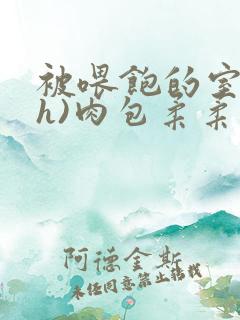 被喂饱的室
h)肉包柔柔
阿德金斯
未经同意禁止转载